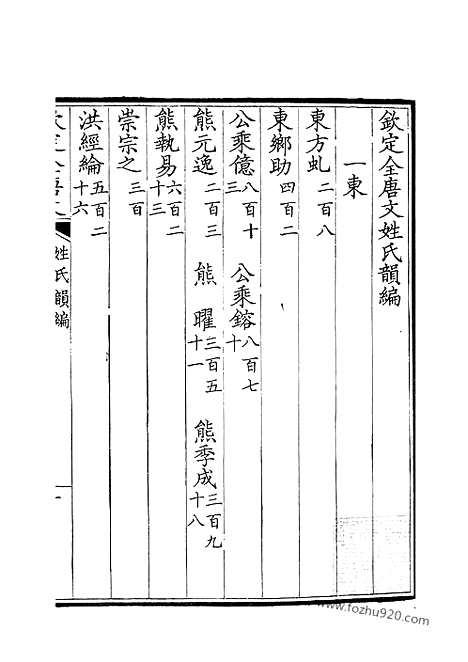 欽定全唐文姓氏韻編
一東
東方虬二百八
東鄉助四百二
公乘億八百十三 公乘鎔八百七十
熊元逸二百三 熊曜三百五十一 熊季成三百九十八
熊執易六百二十三
崇宗之三百
洪經綸五百二十六
欽定全唐文 姓氏韻編 一
www.fozhu920.com